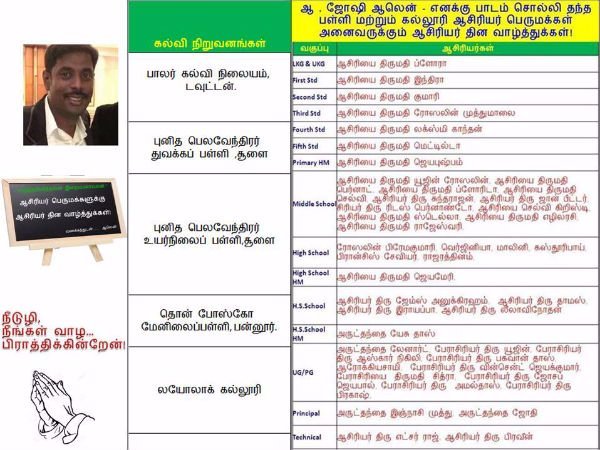 ஆ . ஜோஷி ஆலென் - எனக்கு பாடம் சொல்லி தந்த
பள்ளி மற்றும் கல்லூரி ஆசிரியர் பெருமக்கள்
அனைவருக்கும் ஆசிரியர் தின வாழ்த்துக்கள்!
கல்வி நிறுவனங்கள்
வகுப்பு ஆசிரியர்கள்
பாலர் கல்வி நிலையம்,
டவுட்டன்.
LKG & UKG ஆசிரியை திருமதி ப்ளோரா
First Std ஆசிரியை திருமதி இந்திரா
Second Std ஆசிரியை திருமதி குமாரி
Third Std ஆசிரியை திருமதி ரோஸலின் முத்துமாலை
புனித பெலவேந்திரர்
துவக்கப் பள்ளி ,சூளை
Fourth Std ஆசிரியை திருமதி லக்ஸ்மி காந்தன்
Fifth Std ஆசிரியை திருமதி மெட்டில்டா
Primary HM ஆசிரியை திருமதி ஜெயபுஷ்பம்
புனித பெலவேந்திரர்
உயர்நிலைப் பள்ளி,சூளை
Middle School ஆசிரியை திருமதி யூஜின் ரோஸலின், ஆசிரியை திருமதி
பெர்னாட், ஆசிரியை திருமதி ப்ளோரிடா, ஆசிரியை திருமதி
செல்வி ஆசிரியர் திரு சுந்தராஜன், ஆசிரியர் திரு ஜான் பீட்டர்,
சிரியர் திரு ரிடஸ் பெர்னாண்டோ, ஆசிரியை செல்வி கிறிஸ்டி,
ஆசிரியை திருமதி ஸ்டெல்லா, ஆசிரியை திருமதி எழிலரசி,
ஆசிரியை திருமதி ராஜேஸ்வரி.
High School ரோஸலின் பிரேமகுமாரி, வெர்ஜினியா, மாலினி, கஸ்தூரிபாய்,
பிரான்சிஸ் சேவியர், ராஜரத்தினம்.
High School
HM ஆசிரியை திருமதி ஜெயமேரி.
தொன் போஸ்கோ
மேனிலைப்பள்ளி,பன்னூர்.
H.S.School ஆசிரியர் திரு ஜேம்ஸ் அனுக்கிரஹம், ஆசிரியர் திரு தாமஸ்,
ஆசிரியர் திரு இராயப்பா, ஆசிரியர் திரு லீலாவிநோதன்
H.S.School
HM அருட்தந்தை யேசு தாஸ்
லயோலாக் கல்லூரி
UG/PG அருட்தந்தை லேனார்ட், பேராசிரியர் திரு யூஜின், பேராசிரியர்
திரு ஆஸ்கார் நிகிலி, பேராசிரியர் திரு பகவான் தாஸ்,
ஆரோக்கியசாமி, பேராசிரியர் திரு வின்சென்ட் ஜெயக்குமார்,
பேராசிரியை திருமதி சித்ரா, பேராசிரியர் திரு ஜோசப்
ஜெயபால், பேராசிரியர் திரு அமல்தாஸ், பேராசிரியர் திரு
பிரகாஷ்.
Principal அருட்தந்தை இஞ்நாசி முத்து, அருட்தந்தை ஜோதி
Technical ஆசிரியர் திரு எட்சர் ராஜ், ஆசிரியர் திரு பிரவீன்
ஆசிரியர் பெருமக்களுக்கு
ஆசிரியர் தின வாழ்த்துக்கள்!
நீடுழி,
நீங்கள் வாழ...
பிராத்திக்கின்றேன்!